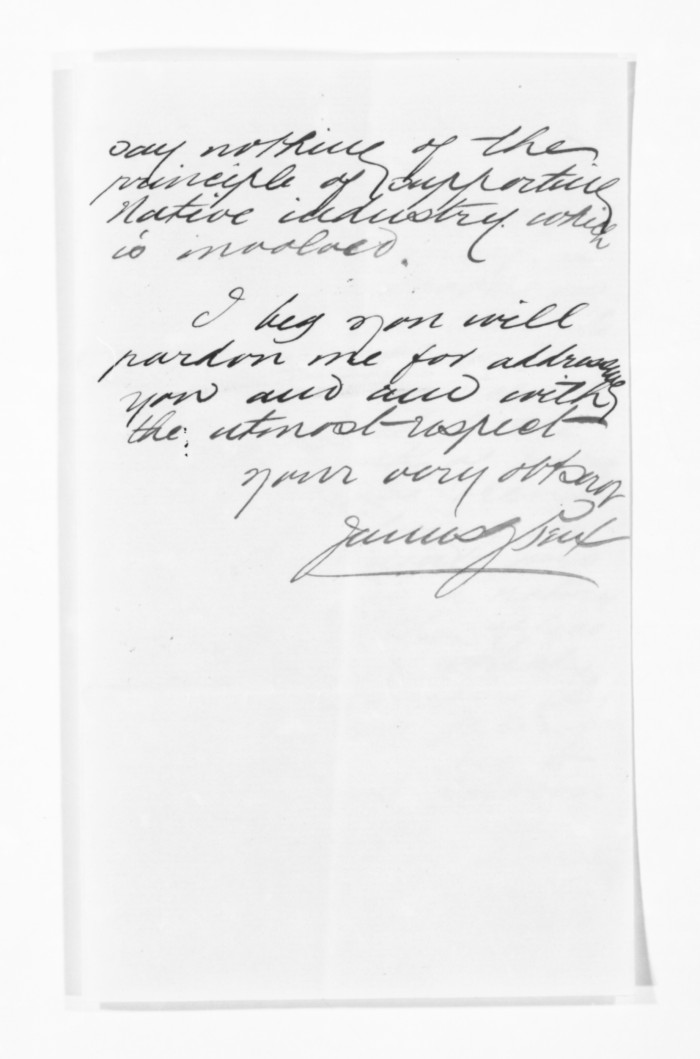 say nothing of the
principle of supporting
Native industry which
is involved.
I beg you will
pardon me for addressing
you and am with
the utmost respect
your very obt servt
James